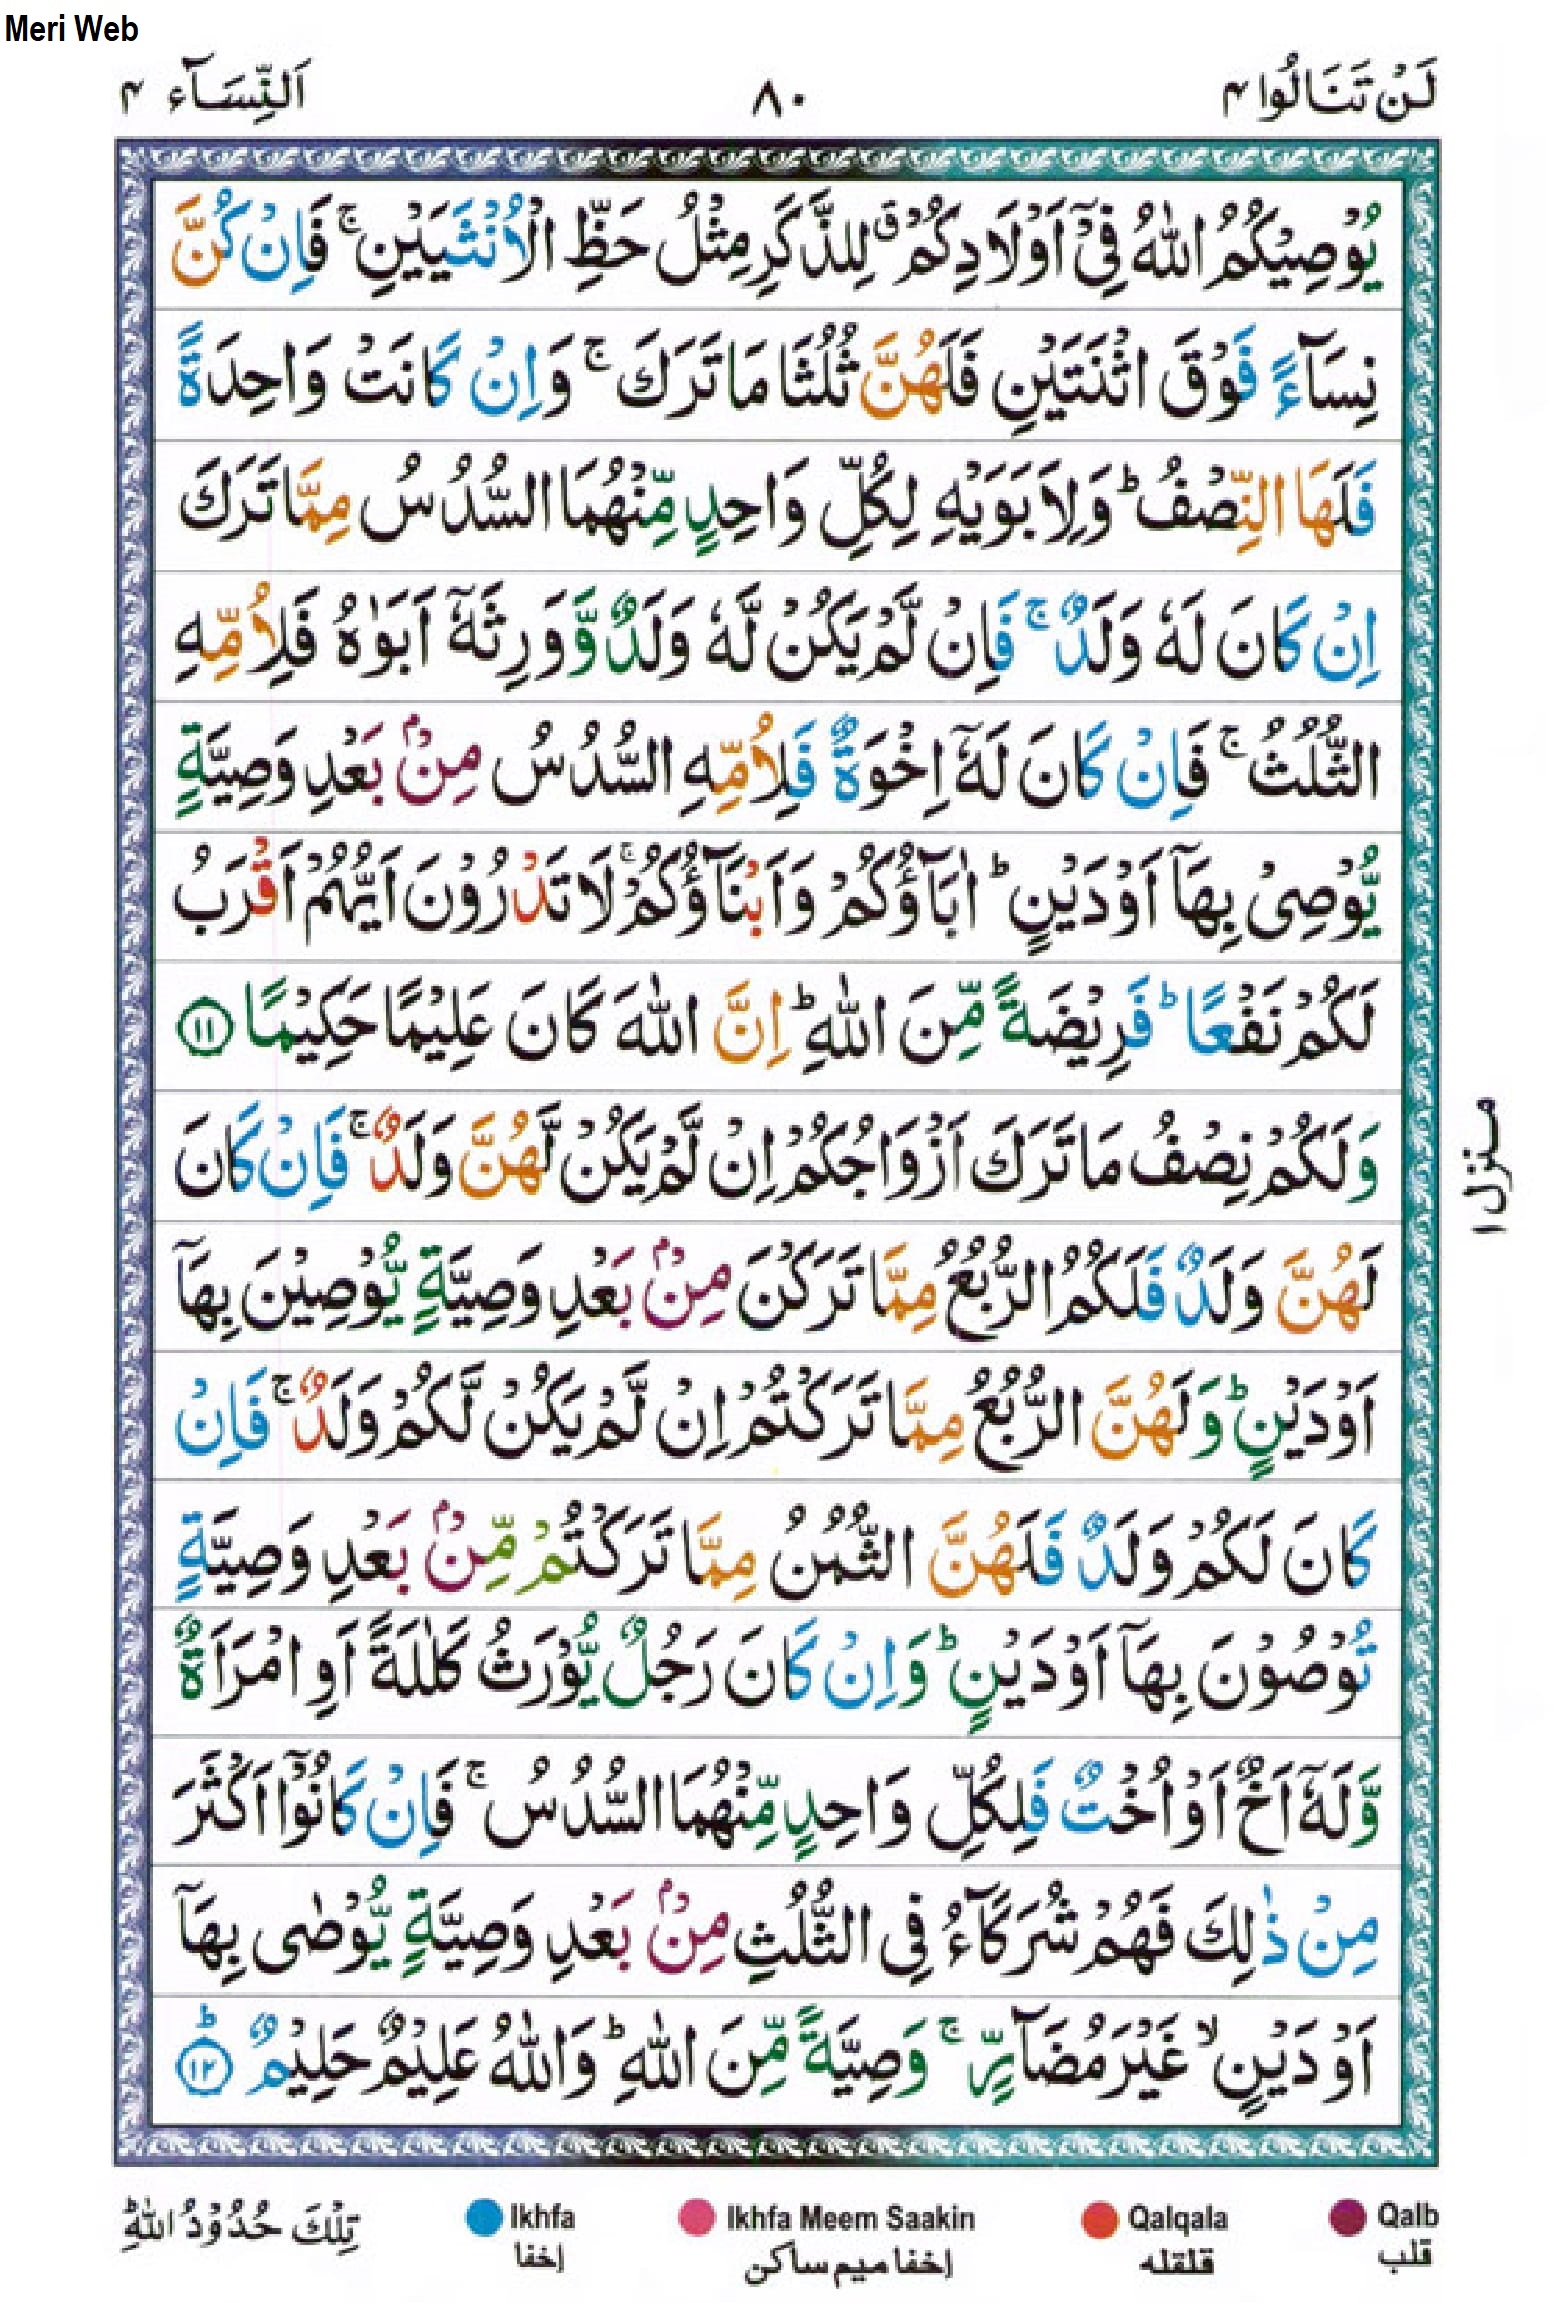 Meri Web
لَنْ تَنَالُوا ۴
۸۰
اَلنِّسَآء ۴
يُوْصِيْكُمُ اللّٰهُ فِيْٓ اَوْلَادِكُمْ ۗ لِلذَّكَرِ مِثْلُ حَظِّ الْاُنْثَيَيْنِ ۚ فَاِنْ كُنَّ
نِسَآءً فَوْقَ اثْنَتَيْنِ فَلَهُنَّ ثُلُثَا مَا تَرَكَ ۚ وَاِنْ كَانَتْ وَاحِدَةً
فَلَهَا النِّصْفُ ؕ وَلِاَبَوَيْهِ لِكُلِّ وَاحِدٍ مِّنْهُمَا السُّدُسُ مِمَّا تَرَكَ
اِنْ كَانَ لَهٗ وَلَدٌ ۚ فَاِنْ لَّمْ يَكُنْ لَّهٗ وَلَدٌ وَّوَرِثَهٗٓ اَبَوٰهُ فَلِاُمِّهِ
الثُّلُثُ ۚ فَاِنْ كَانَ لَهٗٓ اِخْوَةٌ فَلِاُمِّهِ السُّدُسُ مِنْۢ بَعْدِ وَصِيَّةٍ
يُّوْصِيْ بِهَآ اَوْ دَيْنٍ ؕ اٰبَآؤُكُمْ وَاَبْنَآؤُكُمْ ۚ لَا تَدْرُوْنَ اَيُّهُمْ اَقْرَبُ
لَكُمْ نَفْعًا ؕ فَرِيْضَةً مِّنَ اللّٰهِ ؕ اِنَّ اللّٰهَ كَانَ عَلِيْمًا حَكِيْمًا ۝۱۱
وَلَكُمْ نِصْفُ مَا تَرَكَ اَزْوَاجُكُمْ اِنْ لَّمْ يَكُنْ لَّهُنَّ وَلَدٌ ۚ فَاِنْ كَانَ
لَهُنَّ وَلَدٌ فَلَكُمُ الرُّبُعُ مِمَّا تَرَكْنَ مِنْۢ بَعْدِ وَصِيَّةٍ يُّوْصِيْنَ بِهَآ
اَوْ دَيْنٍ ؕ وَلَهُنَّ الرُّبُعُ مِمَّا تَرَكْتُمْ اِنْ لَّمْ يَكُنْ لَّكُمْ وَلَدٌ ۚ فَاِنْ
كَانَ لَكُمْ وَلَدٌ فَلَهُنَّ الثُّمُنُ مِمَّا تَرَكْتُمْ مِّنْۢ بَعْدِ وَصِيَّةٍ
تُوْصُوْنَ بِهَآ اَوْ دَيْنٍ ؕ وَاِنْ كَانَ رَجُلٌ يُّوْرَثُ كَلٰلَةً اَوِ امْرَاَةٌ
وَّلَهٗٓ اَخٌ اَوْ اُخْتٌ فَلِكُلِّ وَاحِدٍ مِّنْهُمَا السُّدُسُ ۚ فَاِنْ كَانُوْٓا اَكْثَرَ
مِنْ ذٰلِكَ فَهُمْ شُرَكَآءُ فِي الثُّلُثِ مِنْۢ بَعْدِ وَصِيَّةٍ يُّوْصٰى بِهَآ
اَوْ دَيْنٍ ۙ غَيْرَ مُضَآرٍّ ۚ وَصِيَّةً مِّنَ اللّٰهِ ؕ وَاللّٰهُ عَلِيْمٌ حَلِيْمٌ ؕ۝۱۲
منزل ۱
Qalb
قلب
Qalqala
قلقله
Ikhfa Meem Saakin
إخفا ميم ساكن
Ikhfa
إخفا
تِلْكَ حُدُوْدُ اللّٰهِ ؕ